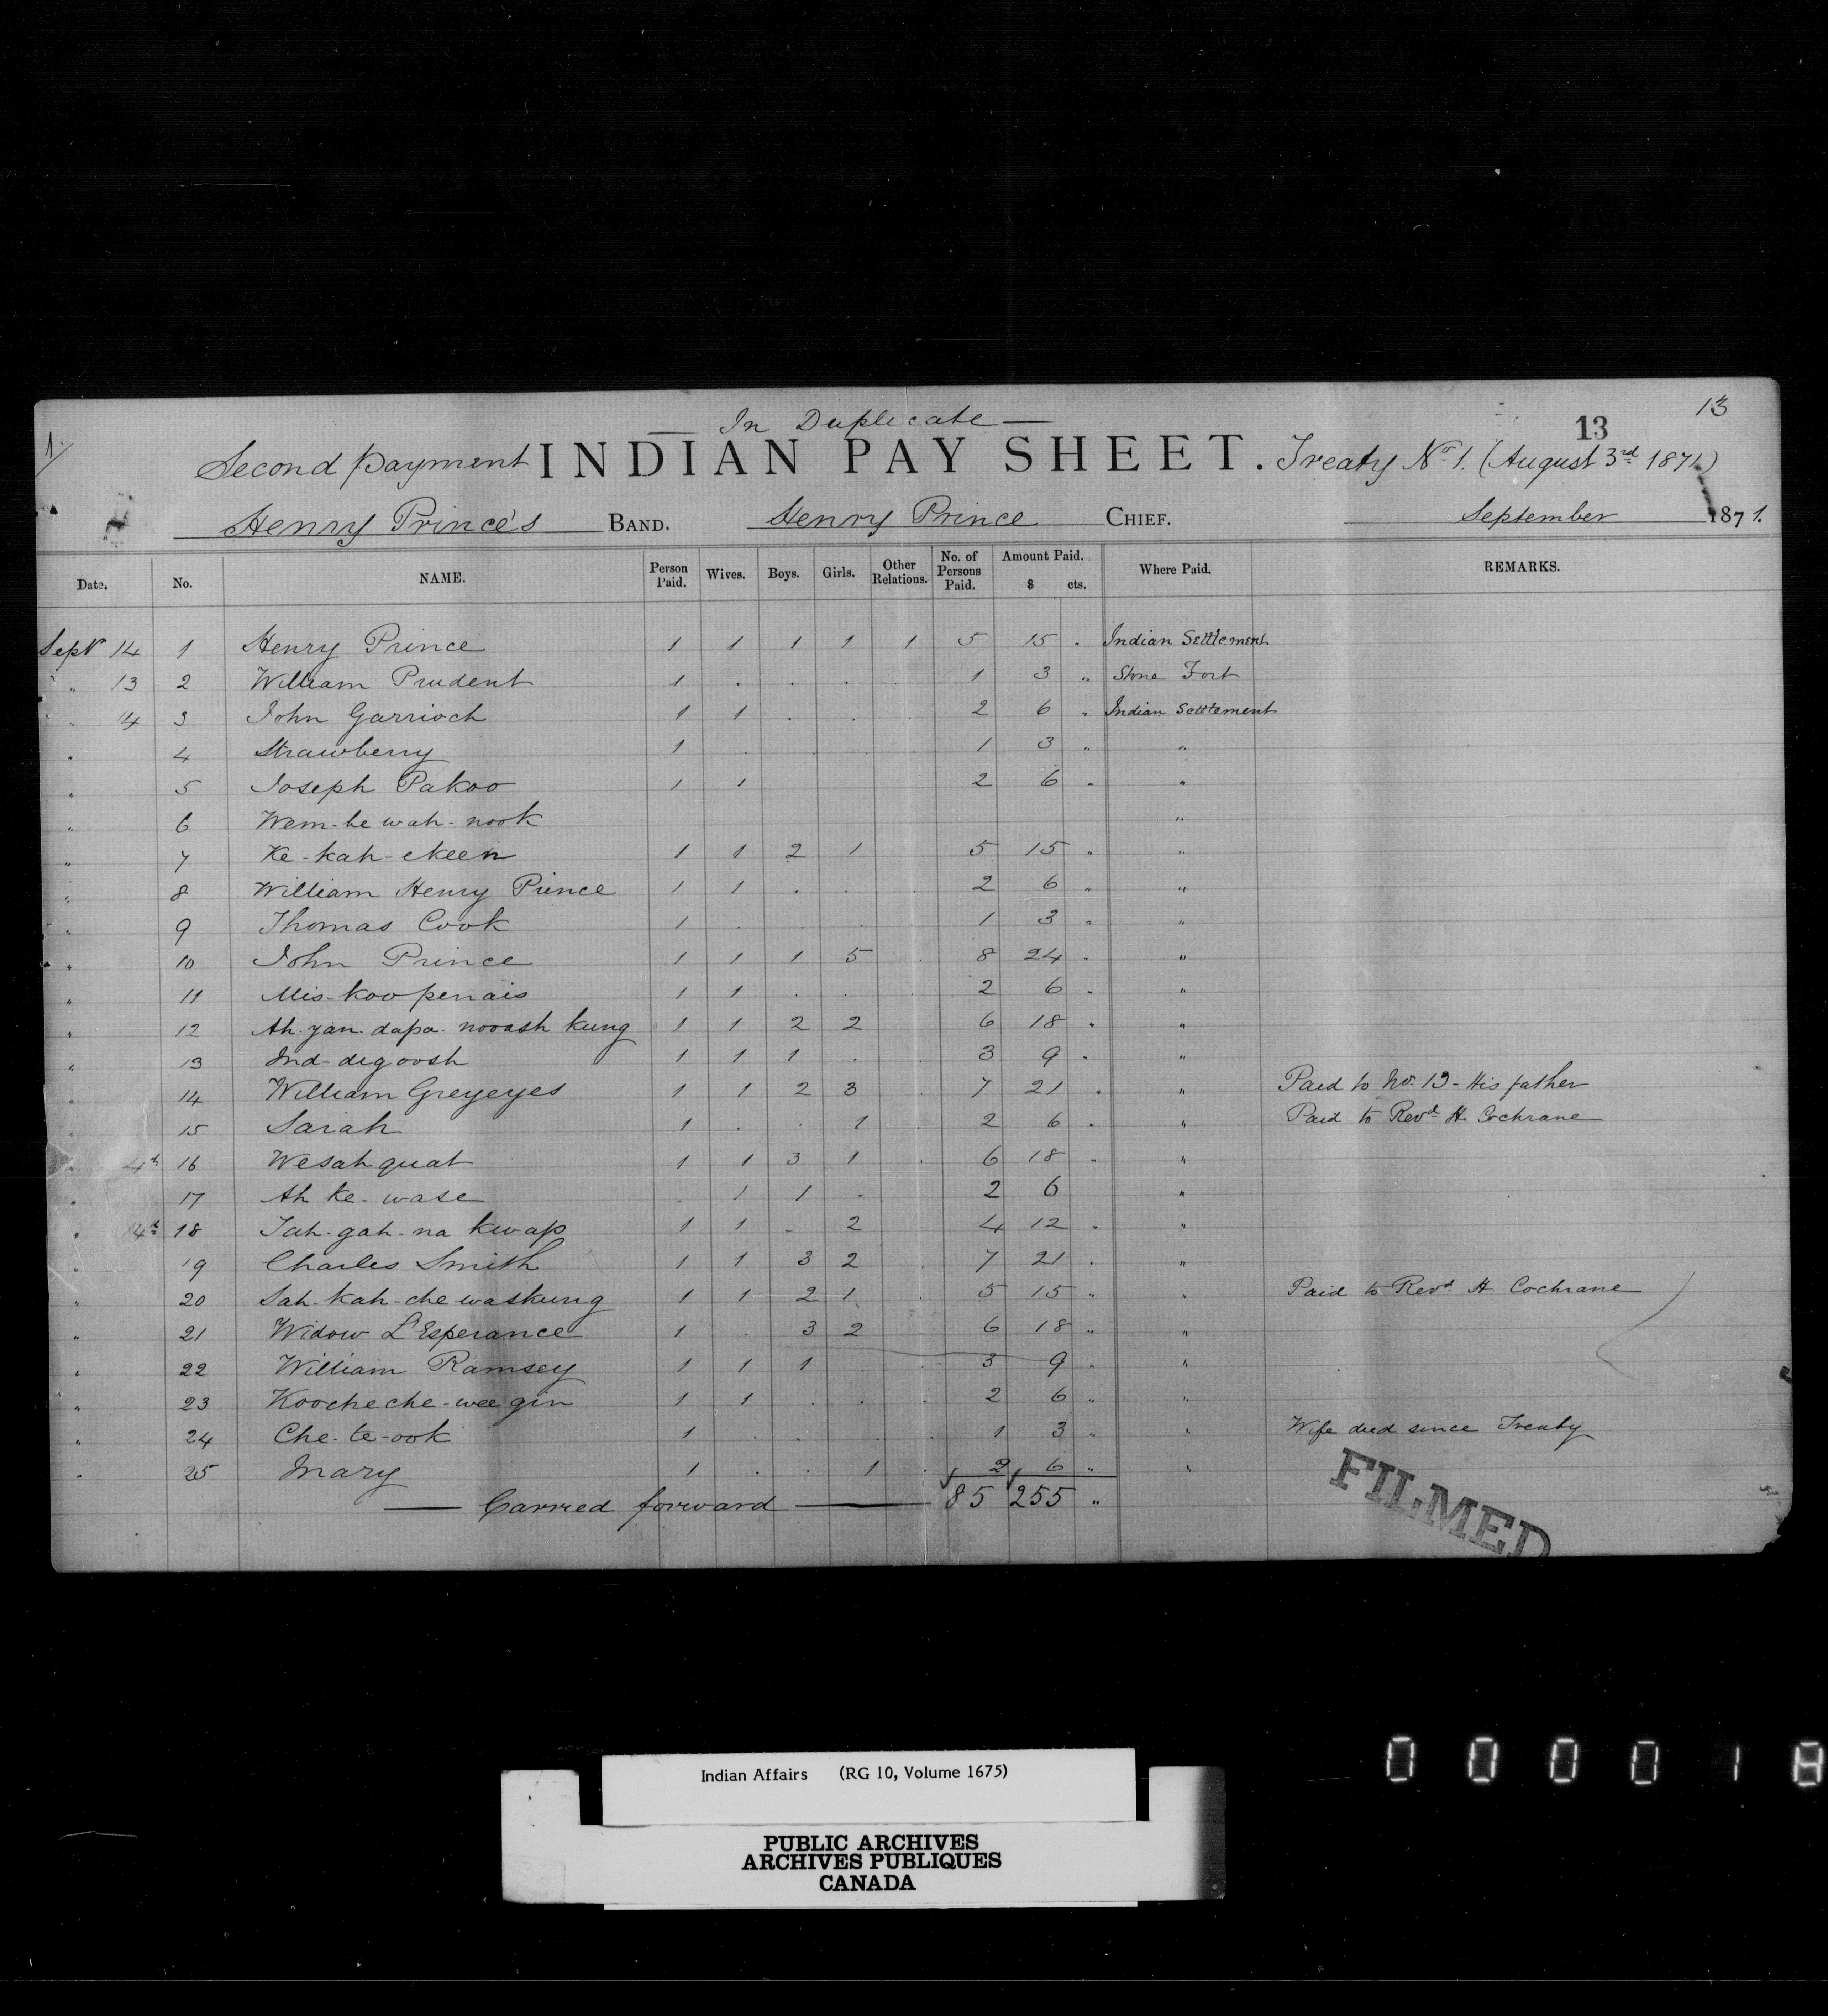 — In Duplicate —
13
13
1.
Second payment INDIAN PAY SHEET. Treaty No. 1. (August 3rd 1871)
Henry Prince's BAND. Henry Prince CHIEF. September 1871.
Date. No. NAME. Person Paid. Wives. Boys. Girls. Other Relations. No. of Persons Paid. Amount Paid. $ cts. Where Paid. REMARKS.
Sept 14 1 Henry Prince 1 1 1 1 1 5 15 " Indian Settlement
" 13 2 William Prudent 1 . . . 1 3 " Stone Fort
" 14 3 John Garrioch 1 1 . . . 2 6 " Indian Settlement
" 4 Strawberry 1 . . . 1 3 " "
" 5 Joseph Pakoo 1 1 2 6 " "
" 6 Wem-be wah-nook "
" 7 Ke-kah-ekeen 1 1 2 1 5 15 " "
" 8 William Henry Prince 1 1 . . . 2 6 " "
" 9 Thomas Cook 1 . . . . 1 3 " "
" 10 John Prince 1 1 1 5 . 8 24 " "
" 11 Mis-koo penais 1 1 . . . 2 6 " "
" 12 Ah-yan-dapa-nooash kung 1 1 2 2 6 18 " "
" 13 Ind-degoosh 1 1 1 . . 3 9 " "
" 14 William Greyeyes 1 1 2 3 . 7 21 " " Paid to No. 13 - His father
" 15 Sarah 1 . . 1 . 2 6 " " Paid to Revd H. Cochrane
" 4th 16 Wesah quat 1 1 3 1 . 6 18 " "
" 17 Ah ke-wase . 1 1 . 2 6 "
" 14th 18 Tah-gah-na kwap 1 1 - 2 4 12 " "
" 19 Charles Smith 1 1 3 2 . 7 21 " "
" 20 Sah-kah-che waskung 1 1 2 1 . 5 15 " " Paid to Revd H. Cochrane
" 21 Widow L'Esperance 1 . 3 2 6 18 " "
" 22 William Ramsey 1 1 1 . 3 9 " "
" 23 Koocheche-wee gin 1 1 . . . 2 6 " "
" 24 Che-te-ook 1 . . . . 1 3 " " Wife died since Treaty
" 25 Mary 1 . . 1 . 2 6 " "
— Carried forward — 85 255 "
FILMED
Indian Affairs (RG 10, Volume 1675)
PUBLIC ARCHIVES
ARCHIVES PUBLIQUES
CANADA
0 0 0 0 1 8